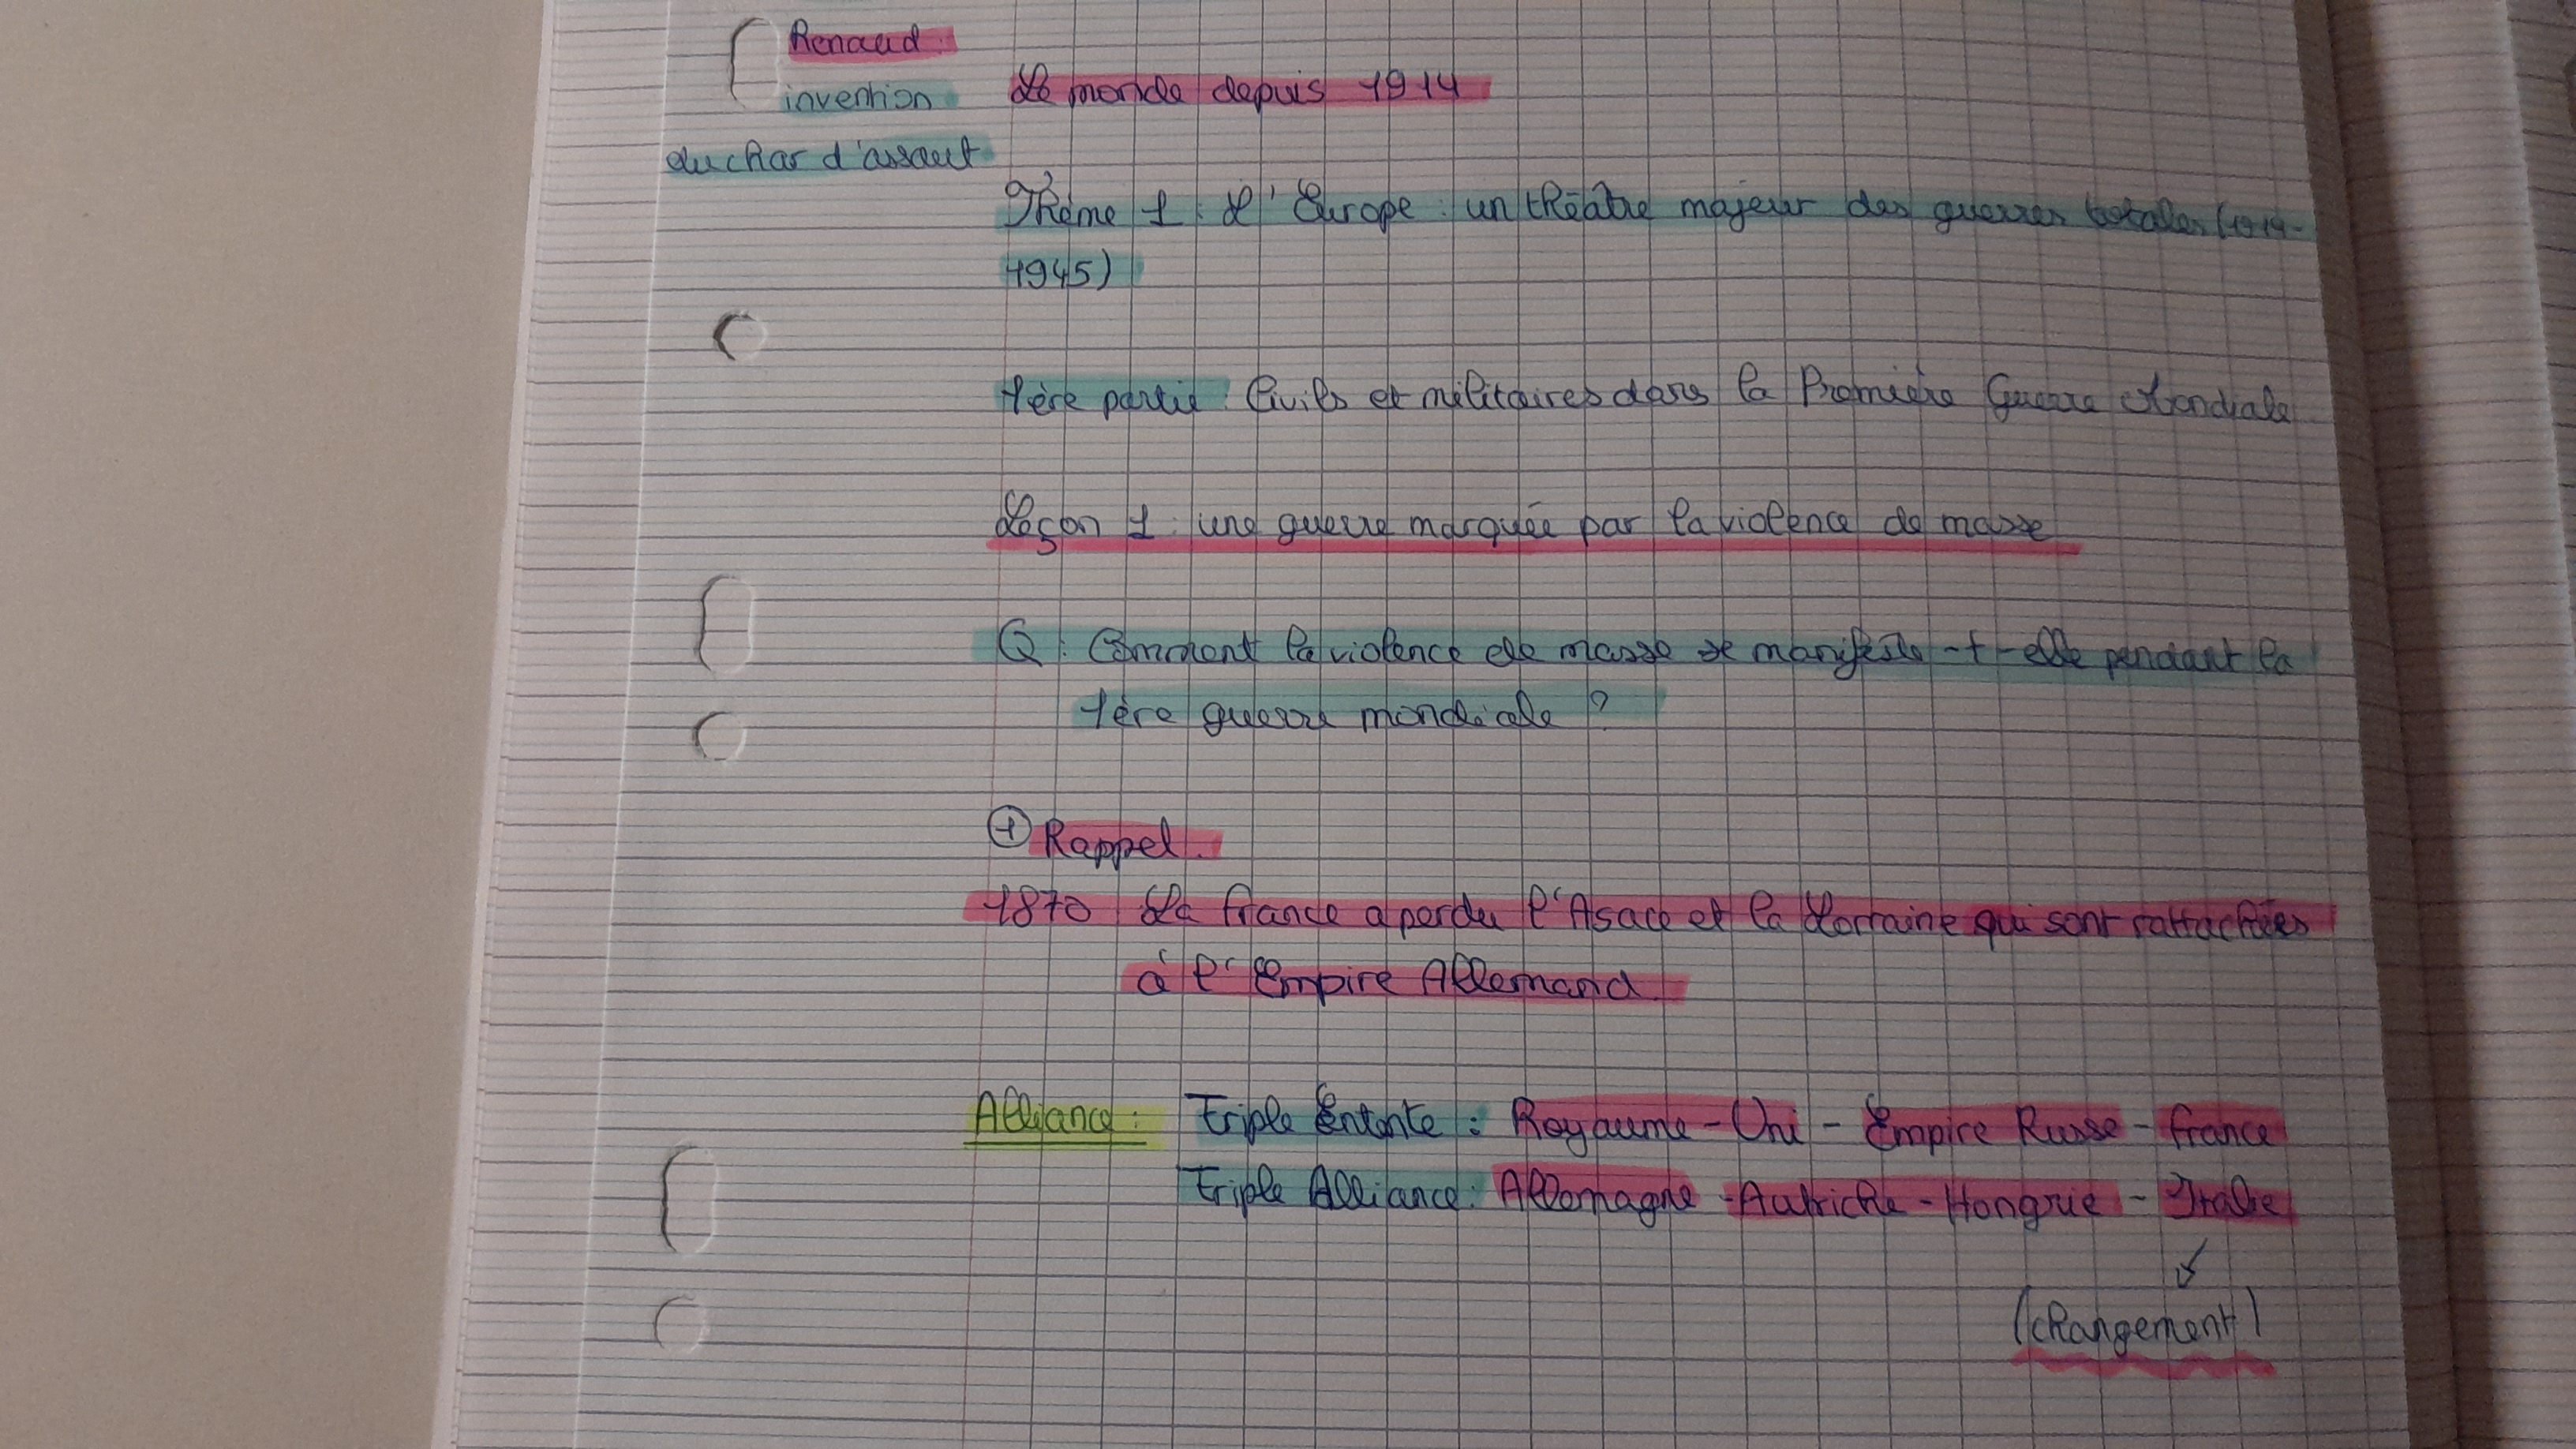 Renaud :
invention
du char d'assaut
Le monde depuis 1914
Thème 1 : L'Europe : un théâtre majeur des guerres totales (1914-
1945)
1ère partie : Civils et militaires dans la Première Guerre Mondiale
Leçon 1 : une guerre marquée par la violence de masse
Q : Comment la violence de masse se manifeste-t-elle pendant la
1ère guerre mondiale ?
+ Rappel :
1870 La france a perdu l'Asace et la Lorraine qui sont rattachées
à l'Empire Allemand
Alliance : Triple Entente : Royaume-Uni - Empire Russe - france
Triple Alliance : Allemagne - Autriche-Hongrie - Italie
(changement)